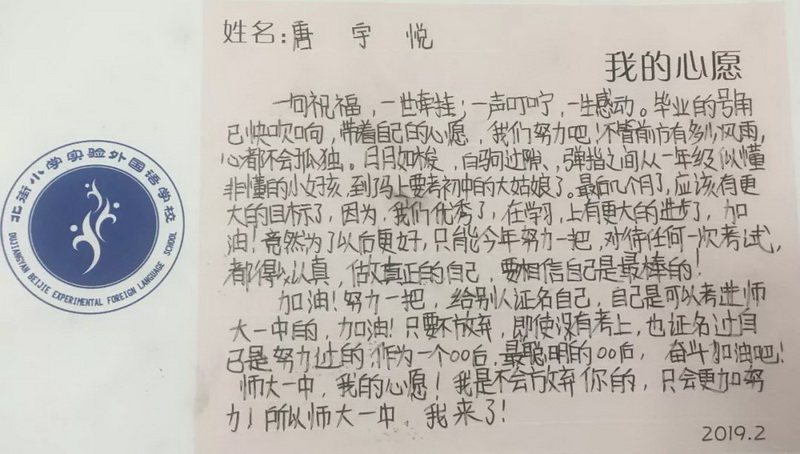 姓名:唐 宇 悦
我的心愿
一句祝福，一世牵挂；一声叮咛，一生感动。毕业的号角
已快吹响，带着自己的心愿，我们努力吧！不管前方有多少风雨，
心都不会孤独。日月如梭，白驹过隙、弹指之间从一年级似懂
非懂的小女孩，到了马上要考初中的大姑娘了。最后几个月了，应该有更
大的目标了，因为，我们优秀了，在学习上有更大的进步了，加
油！竟然为了以后更好，只能今年努力一把，对待任何一次考试，
都得以认真，做真正的自己，要相信自己是最棒的！
加油！努力一把，给别人证名自己，自己是可以考进师
大一中的，加油！只要不放弃，即使没有考上，也证名过自
己是努力过的，作为一个00后，最聪明的00后，奋斗加油吧！
师大一中，我的心愿！我是不会放弃你的，只会更加努
力！所以师大一中，我来了！
2019.2
北街小学实验外国语学校
DUJIANGYAN BEIJIE EXPERIMENTAL FOREIGN LANGUAGE SCHOOL